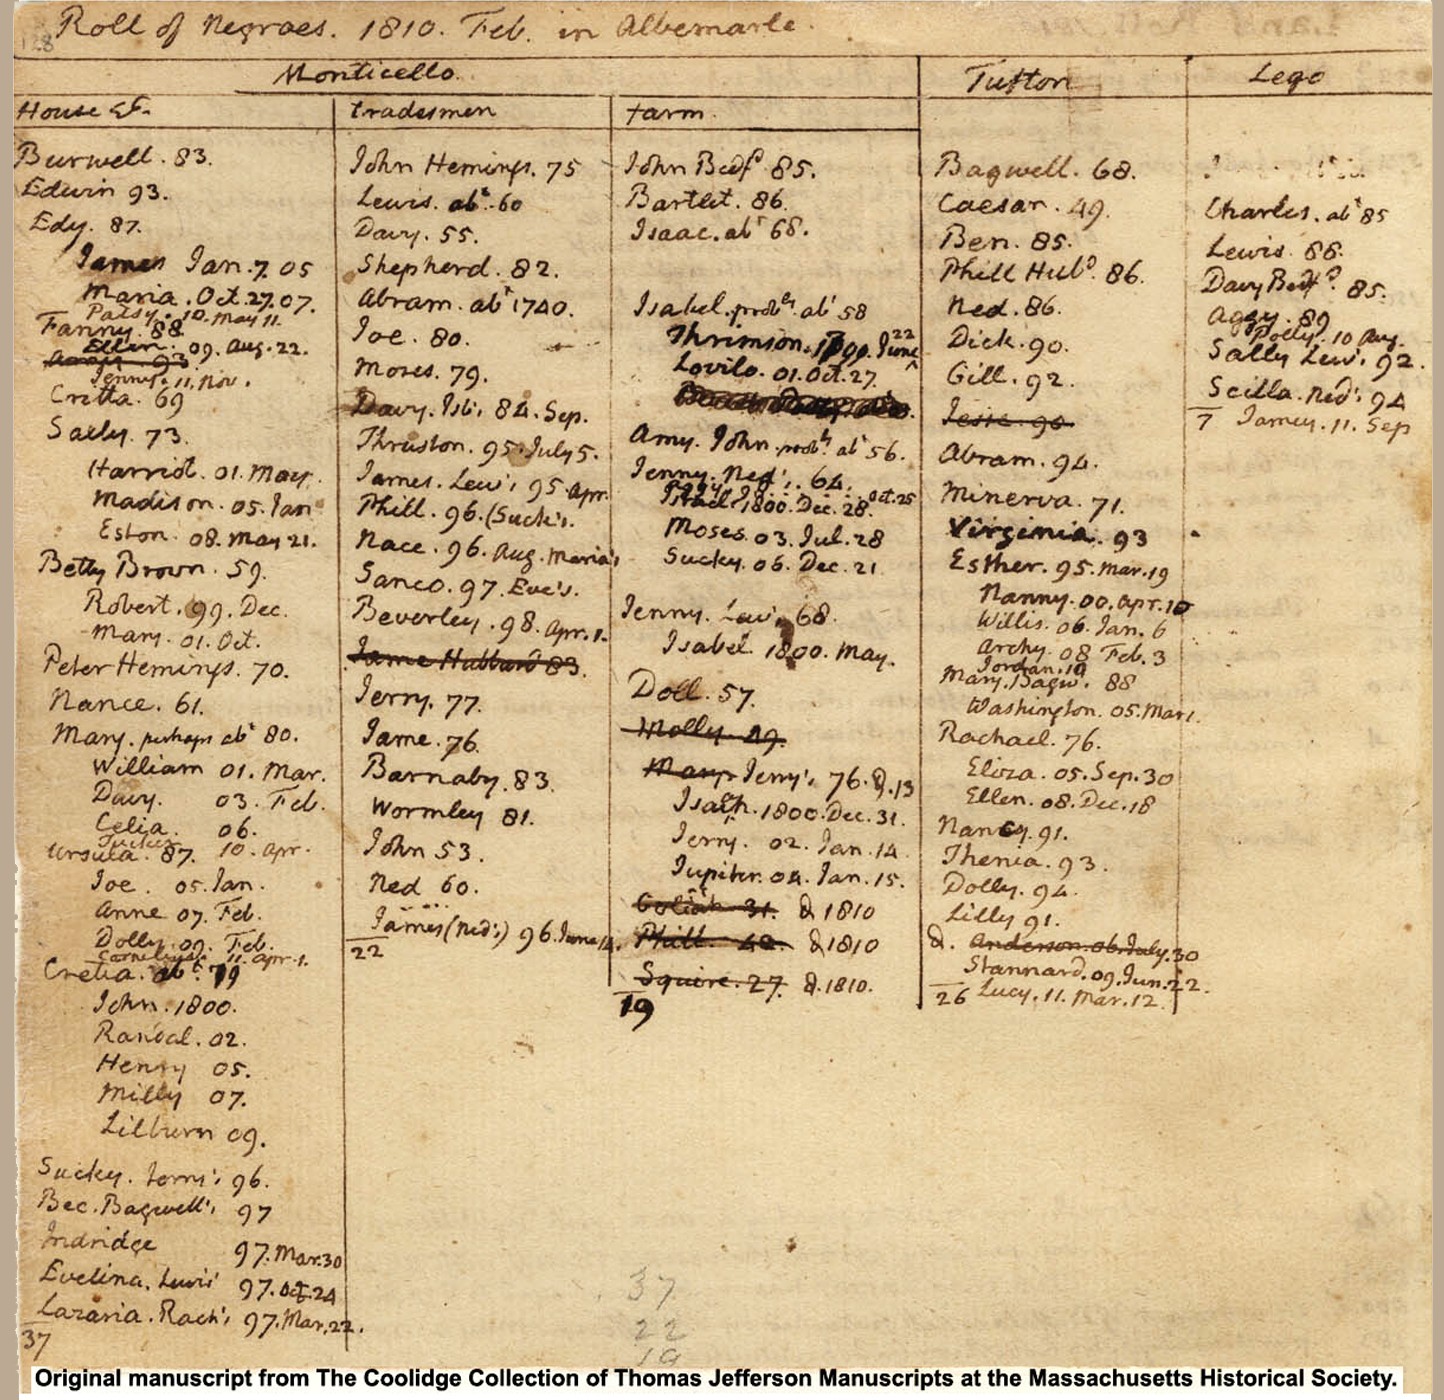 Roll of Negroes. 1810. Feb. in Albemarle.
Monticello.
Tufton
Lego
House &c.
tradesmen
farm.
Burwell. 83.
Edwin 93.
Edy. 87.
James Jan. 7. 05
Maria. Oct. 27. 07.
Patsy. 10. May 11.
Fanny. 88
Ellen. 09. Aug. 22.
93
Jenny. 11. Nov.
Cretta. 69
Sally. 73.
Harriet. 01. May.
Madison. 05. Jan
Eston. 08. May 21.
Betty Brown. 59.
Robert. 99. Dec.
Mary. 01. Oct.
Peter Hemings. 70.
Nance. 61.
Mary. perhaps abt 80.
William 01. Mar.
Davy. 03. Feb.
Celia. 06.
Tucker 10. Apr.
Ursula. 87.
Joe. 05. Jan.
Anne 07. Feb.
Dolly. 09. Feb.
Cornelius 11. Apr. 1.
Cretia. abt 79
John. 1800.
Randal. 02.
Henry 05.
Milly 07.
Lilburn 09.
Sucky. Jerry's 96.
Bec. Bagwell's 97
Indridge 97. Mar. 30
Evelina. Lewis' 97. Oct. 24
Lazaria. Rach's 97. Mar. 22.
37
John Hemings. 75
Lewis. abt. 60
Davy. 55.
Shepherd. 82.
Abram. abt 1740.
Joe. 80.
Moses. 79.
Davy. Isb's 84. Sep.
Thruston. 95. July 5.
James. Lew's 95. Apr.
Phill. 96. (Suck's.
Nace. 96. Aug. Maria's
Sanco. 97. Eve's.
Beverley. 98. Apr. 1.
Jame Hubbard 83.
Jerry. 77.
Jame. 76.
Barnaby. 83.
Wormley 81.
John 53.
Ned 60.
James (Ned's) 96. June 14.
22
John Bedfd 85.
Bartlet. 86.
Isaac. abt 68.
Isabel. probly abt 58
Thrimson. 1799. June 22
Lovilo. 01. Oct. 27.
Amy. John. probly abt 56.
Jenny. Ned's. 64.
Oct. 25
Israel. 1800. Dec. 28.
Moses. 03. Jul. 28
Sucky. 06. Dec. 21
Jenny. Lew's 68.
Isabel. 1800. May.
Doll. 57.
Molly. 49.
Mary. Jerry's 76. d. 13
Isaiah. 1800. Dec. 31.
Jerry. 02. Jan. 14.
Jupiter. 04. Jan. 15.
Goliah 31. d 1810
Phill. d 1810
Squire. 27. d. 1810.
19
Bagwell. 68.
Caesar. 49.
Ben. 85.
Phill Hubd. 86.
Ned. 86.
Dick. 90.
Gill. 92.
Jesse. 90.
Abram. 94.
Minerva. 71.
Virginia. 93
Esther. 95. Mar. 19
Nanny. 00. Apr. 10
Willis. 06. Jan. 6
Archy. 08 Feb. 3
Jordan. 10
Mary. Bagw's 88
Washington. 05. Mar 1.
Rachael. 76.
Eliza. 05. Sep. 30
Ellen. 08. Dec. 18
Nancy. 91.
Thenia. 93.
Dolly. 94.
Lilly 91.
d. Anderson. 06. July. 30
Stannard. 09. Jun. 22.
Lucy. 11. Mar. 12.
26
Charles. abt 85
Lewis. 88.
Davy Bedfd. 85.
Aggy. 89
Polly. 10 Aug.
Sally Lew's 92.
Scilla. Ned's 94
Jamey. 11. Sep
7
37
22
19
Original manuscript from The Coolidge Collection of Thomas Jefferson Manuscripts at the Massachusetts Historical Society.